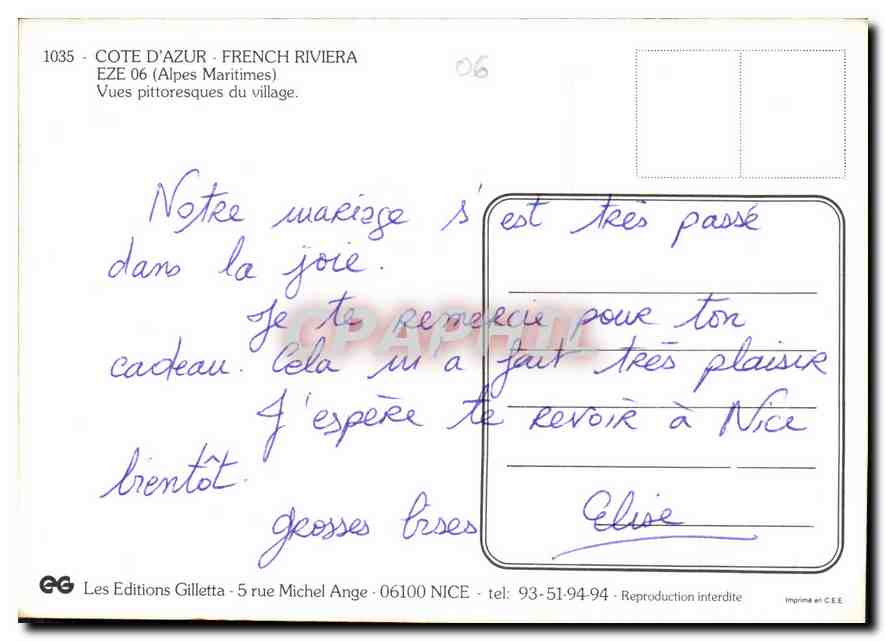 1035 - COTE D'AZUR - FRENCH RIVIERA
EZE 06 (Alpes Maritimes)
Vues pittoresques du village.
06
Notre mariage s'est très passé
dans la joie.
Je te remercie pour ton
cadeau. Cela m'a fait très plaisir
J'espère te revoir à Nice
bientôt.
grosses bises Elise
CPAPHIL
EG Les Editions Gilletta - 5 rue Michel Ange - 06100 NICE - tel: 93-51-94-94 - Reproduction interdite
Imprimé en C.E.E.